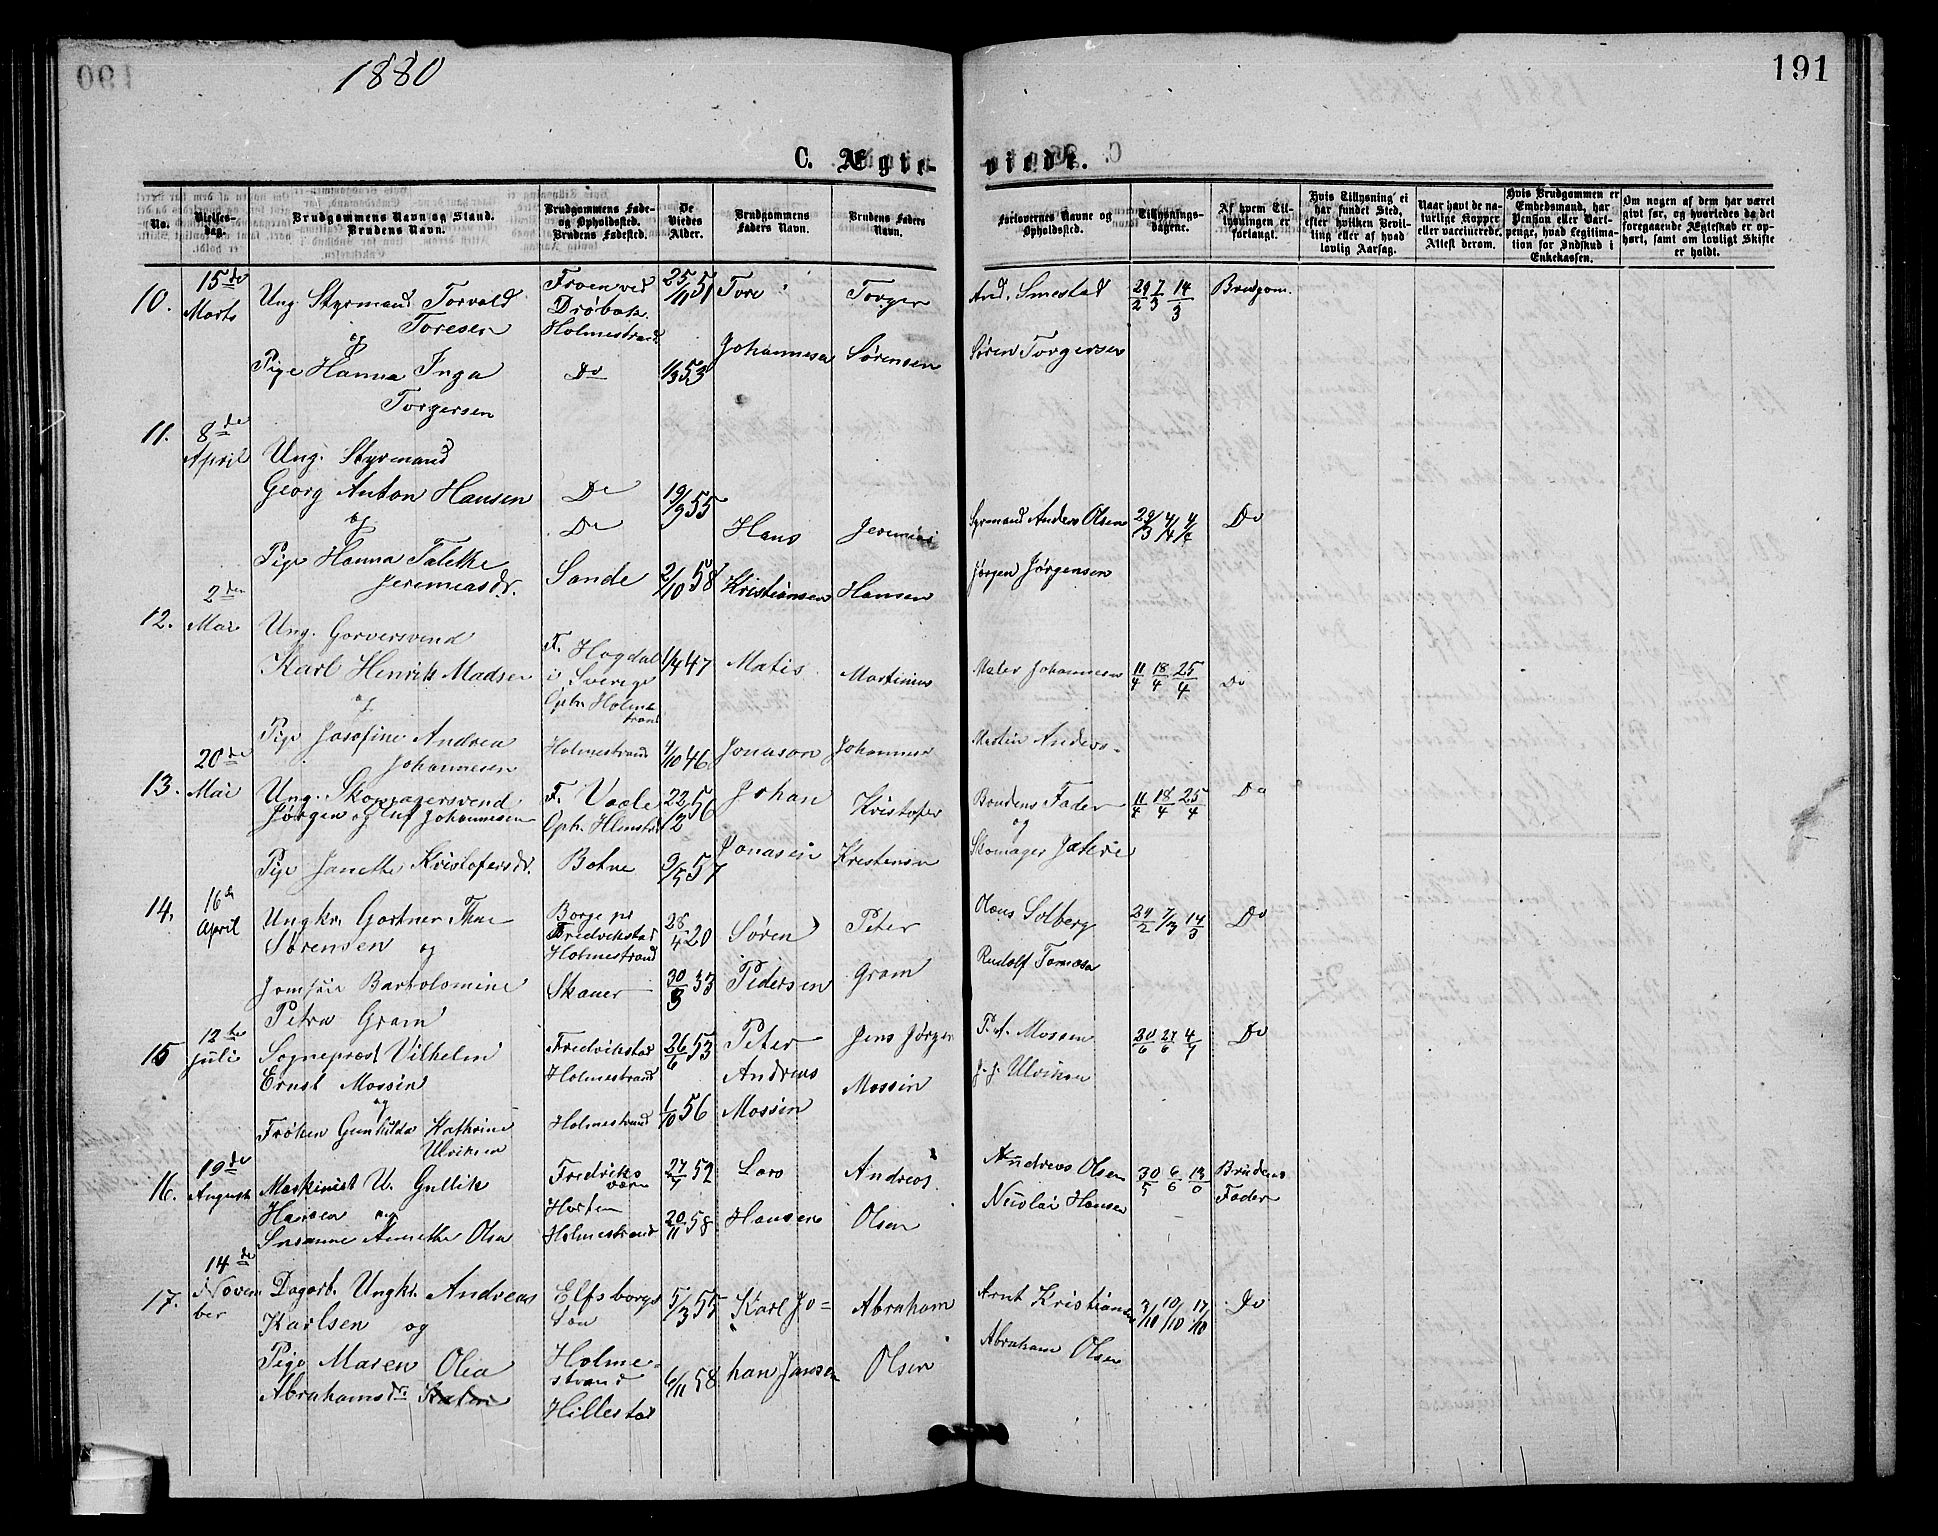 1880
191
C. Ægte-
viede.
No.
Vielses-
dag.
Brudgommens Navn og Stand.
Brudens Navn.
Brudgommens Føde-
og Opholdssted.
Brudens Fødested.
De
Viedes
Alder.
Brudgommens
Faders Navn.
Brudens Faders
Navn.
Forlovernes Navne og
Opholdssted.
Tillysnings-
dagene.
Af hvem Til-
lysningen er
forlangt.
Hvis Tillysning ei
har fundet Sted,
efter hvilken Bevil-
ling eller af hvad
lovlig Aarsag.
Naar havt de na-
turlige Kopper
eller vaccinerede.
Attest derom.
Hvis Brudgommen er
Embedsmand, har
Pension eller Vart-
penge, hvad Legitima-
tion for Indskud i
Enkekassen.
Om nogen af dem har været
gift før, og hvorledes da det
foregaaende Ægteskab er op-
hørt, samt om lovligt Skifte
er holdt.
10.
15de
Marts
Ung. Styrmand Torvald
Toresen
og
Pige Hanna Inga
Torgersen
Froen ved
Drøbak.
Holmestrand
Do
25/11 51
1/3 53
Tore
Johannesen
Torger
Sørensen
And. Smestad
Søren Torgersen
29/2 7/3 14/3
Brudgom.
11.
8de
April
Ung. Styrmand
Georg Anton Hansen
og
Pige Hanna Talethe
Jeremiasdr.
Do
Do
Sande
19/9 55
2/10 58
Hans
Kristiansen
Jeremias
Hansen
Syrmand Anders Olsen
Jørgen Jørgensen
29/3 4/4 4/4
Do
12.
2den
Mai
Ung. Garversvend
Karl Henrik Madsen
og
Pige Josefine Andrea
Johannesen
F. Hogdal
i Sverige
Oph. Holme
strand
Holmestrand
1/4 47
4/10 46
Matis
Jonason
Martinius
Johannesen
Maler Johannesen
Martin Anders.
11/4 18/4 25/4
Do
13.
20de
Mai
Ung. Skomagersvend
Jørgen Oluf Johannesen
og
Pige Janethe Kristofersdr.
F. Vaale
Oph. Hlmstrd
Botne
22/12 56
9/5 57
Johan
Jonasen
Kristofer
Kristensen
Brudens Fader
og
Skomager
11/4 18/4 25/4
Do
14.
16de
April
Ungkr. Gartner Thor
Sørensen og
Jomfru Bartolomine
Petra Gram
Borge pr
Fredrikstad
Holmestrand
Skauer
28/4 20
30/3 33
Søren
Pedersen
Peter
Gram
Olaus Solberg
Rudolf Tomesen
29/2 7/3 14/3
Do
15
12te
Juli
Sognepræst Vilhelm
Ernst Mossin
og
Frøken Gunhilda Kathrine
Ulriksen
Fredrikstad
Holmestrand
Holmestrand
26/6 53
1/10 56
Peter
Andreas
Mossin
Jens Jørgen
Mossin
P. A. Mossin
J. J. Ulriksen
20/6 27/6 4/7
Do
16.
19de
August
Maskinist U. Gullik
Hansen og
Susanne Annethe Olsen
Fredriks
værn
Horten
Holmestrand
27/7 52
20/11 58
Lars
Hansen
Andreas.
Olsen
Andreas Olsen
Nicolai Hansen
30/5 6/6 13/6
Brudens
Fader
17.
14de
Novem
ber
Dagarb. Ungkr. Andreas
Karlsen og
Pige Maren Olea
Abrahamsdr.
Elfsborgs
Län
Holme-
strand
Hillestad
5/3 55
6/11 58
Karl Jo-
han Jansen
Abraham
Olsen
Arnt Kristiansen
Abraham Olsen
3/10 10/10 17/10
Do